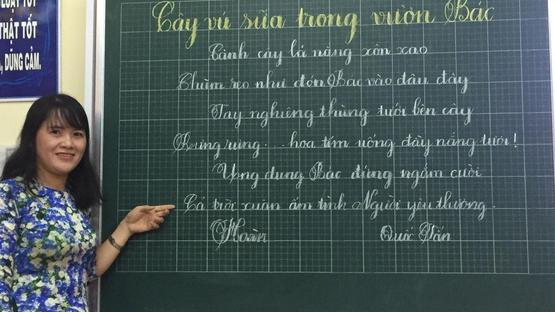 LUẬT TỐT
THẬT TỐT
, DŨNG CẢM.
Cây vú sữa trong vườn Bác
Cành cây lá nắng xôn xao
Chùm reo như đón Bác vào đâu đây
Tay nghiêng thùng tưới bên cây
Rưng rưng... hoa tím uống đầy nắng tươi!
Ung dung Bác đứng ngắm cười
Cả trời xuân ấm tình Người yêu thương.
Quốc Tấn